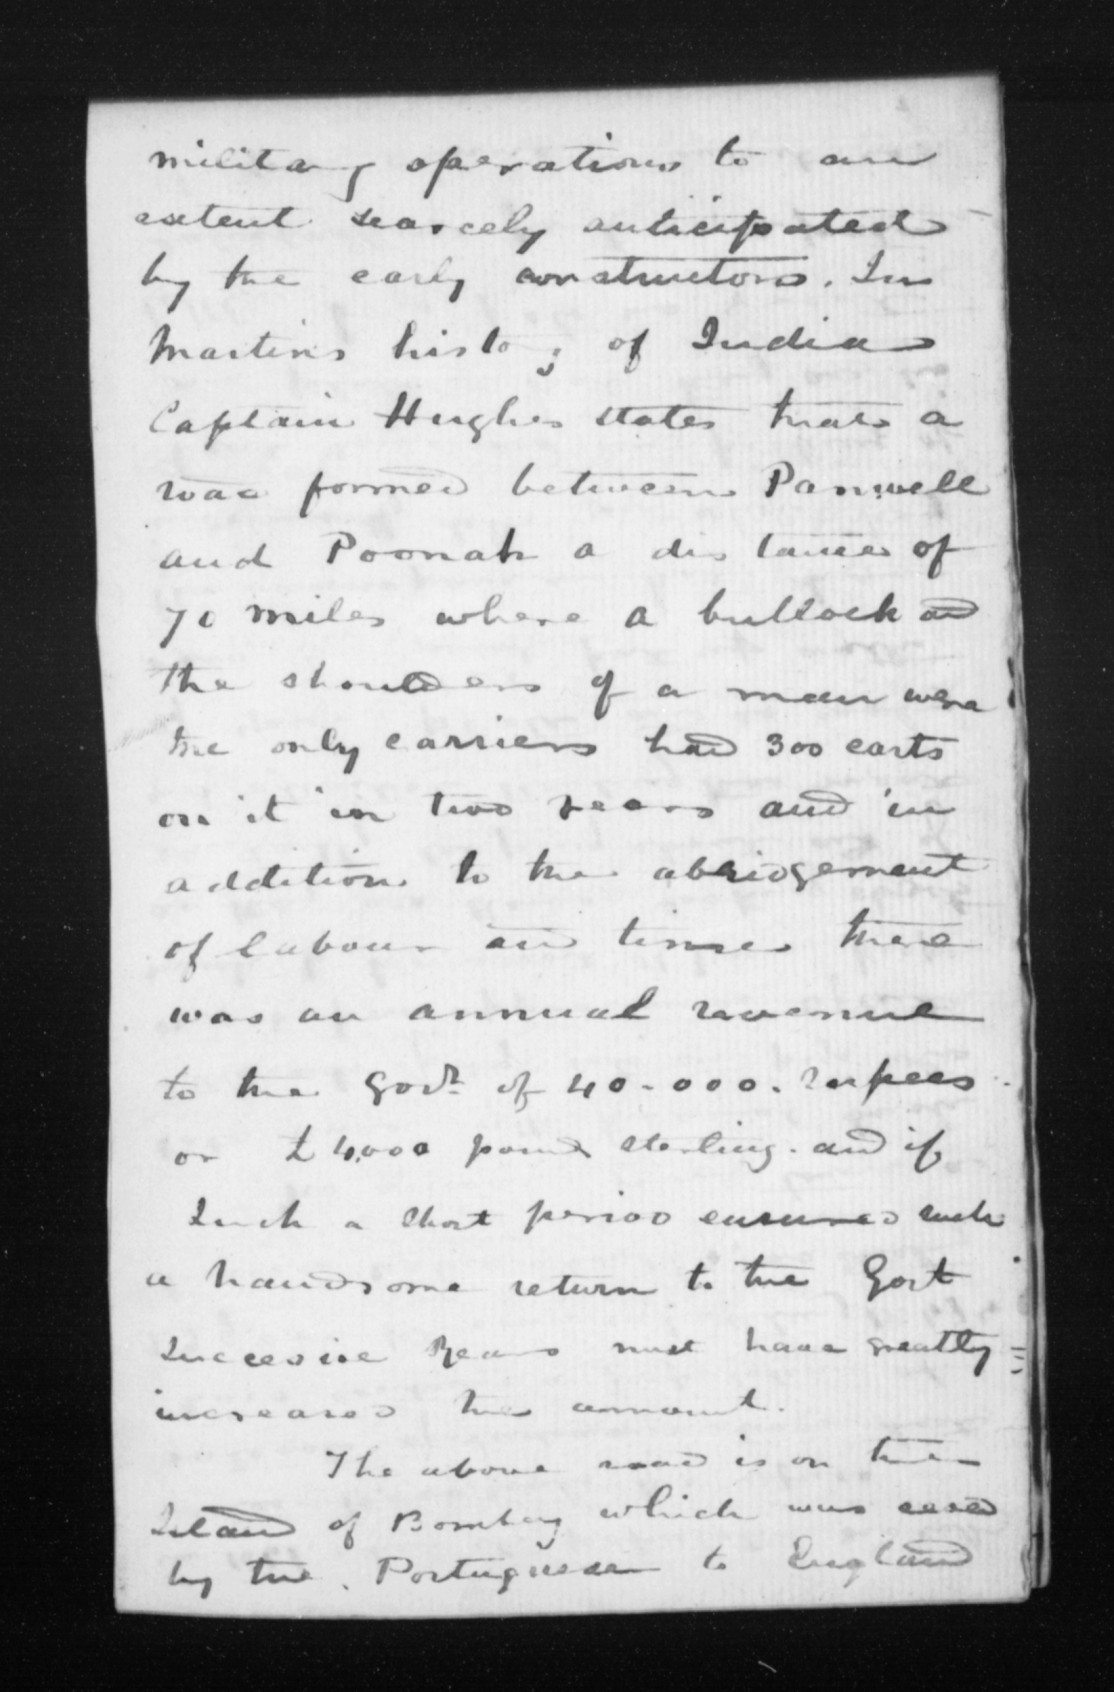 military operations to an
extent scarcely anticipated
by the early constructors. In
Martin's history of India
Captain Hughes states that a
road formed between Panwell
and Poonah a distance of
70 miles where a bullock and
the shoulders of a man were
the only carriers had 300 carts
on it in two years and in
addition to the abridgement
of labour and time there
was an annual revenue
to the Govt of 40.000. rupees
or £4,000 pound sterling. and if
Such a short period ensured such
a handsome return to the Govt
Succesive years must have greatly
increased the amount.
The above road is on the
Island of Bombay which was
by the Portuguese to England